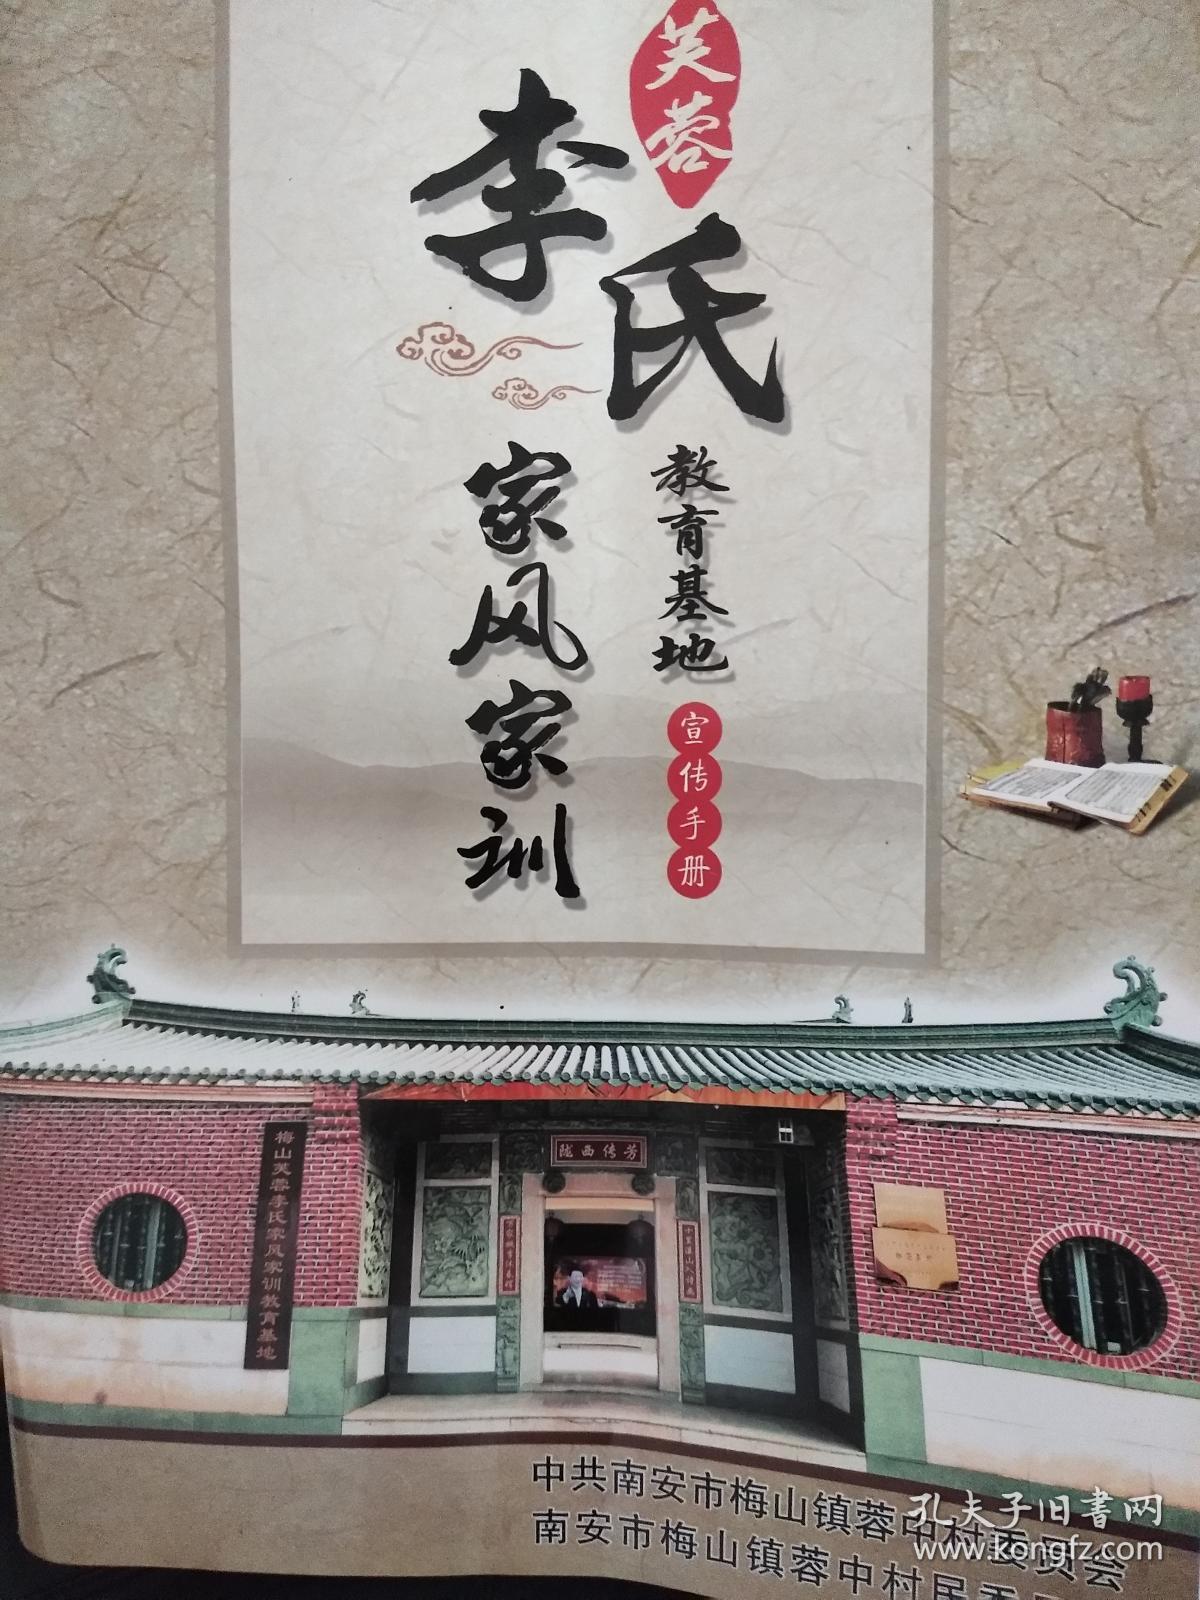 芙蓉
李氏
家风家训
教育基地
宣传手册
陇西传芳
梅山芙蓉李氏家风家训教育基地
中共南安市梅山镇蓉中村委员会
南安市梅山镇蓉中村民委
孔夫子旧书网
www.kongfz.com